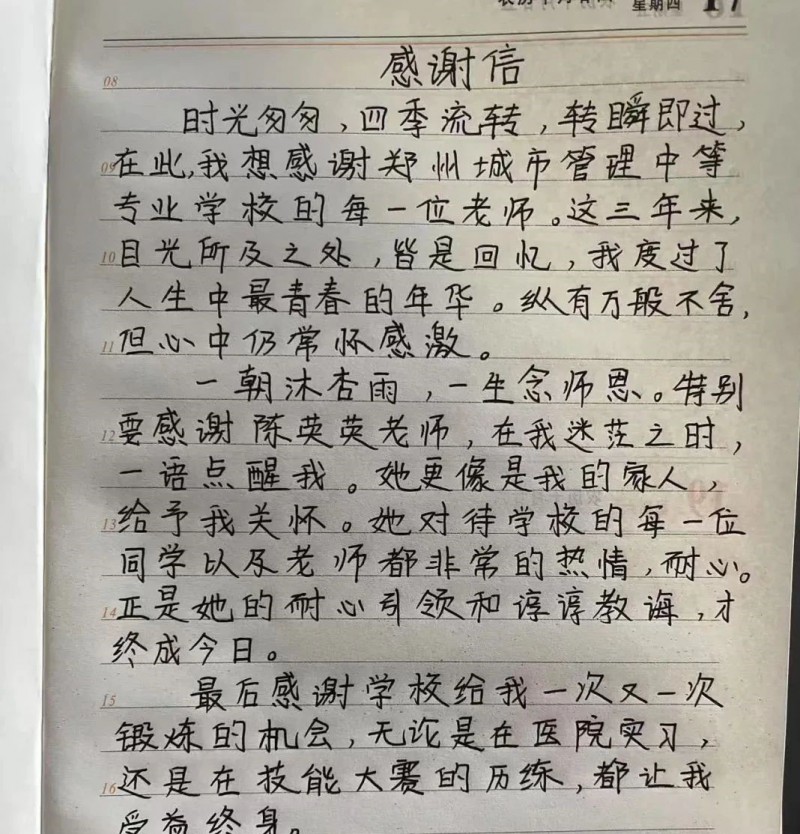 星期四 17
感谢信
08
时光匆匆，四季流转，转瞬即过，
09 在此，我想感谢郑州城市管理中等
专业学校的每一位老师。这三年来，
10 目光所及之处，皆是回忆，我度过了
人生中最青春的年华。纵有万般不舍，
11 但心中仍常怀感激。
一朝沐杏雨，一生念师恩。特别
12 要感谢陈英英老师，在我迷茫之时，
一语点醒我。她更像是我的家人，
13 给予我关怀。她对待学校的每一位
同学以及老师都非常的热情，耐心。
14 正是她的耐心引领和谆谆教诲，才
终成今日。
15 最后感谢学校给我一次又一次
锻炼的机会，无论是在医院实习，
16 还是在技能大赛的历练，都让我
受益终身。